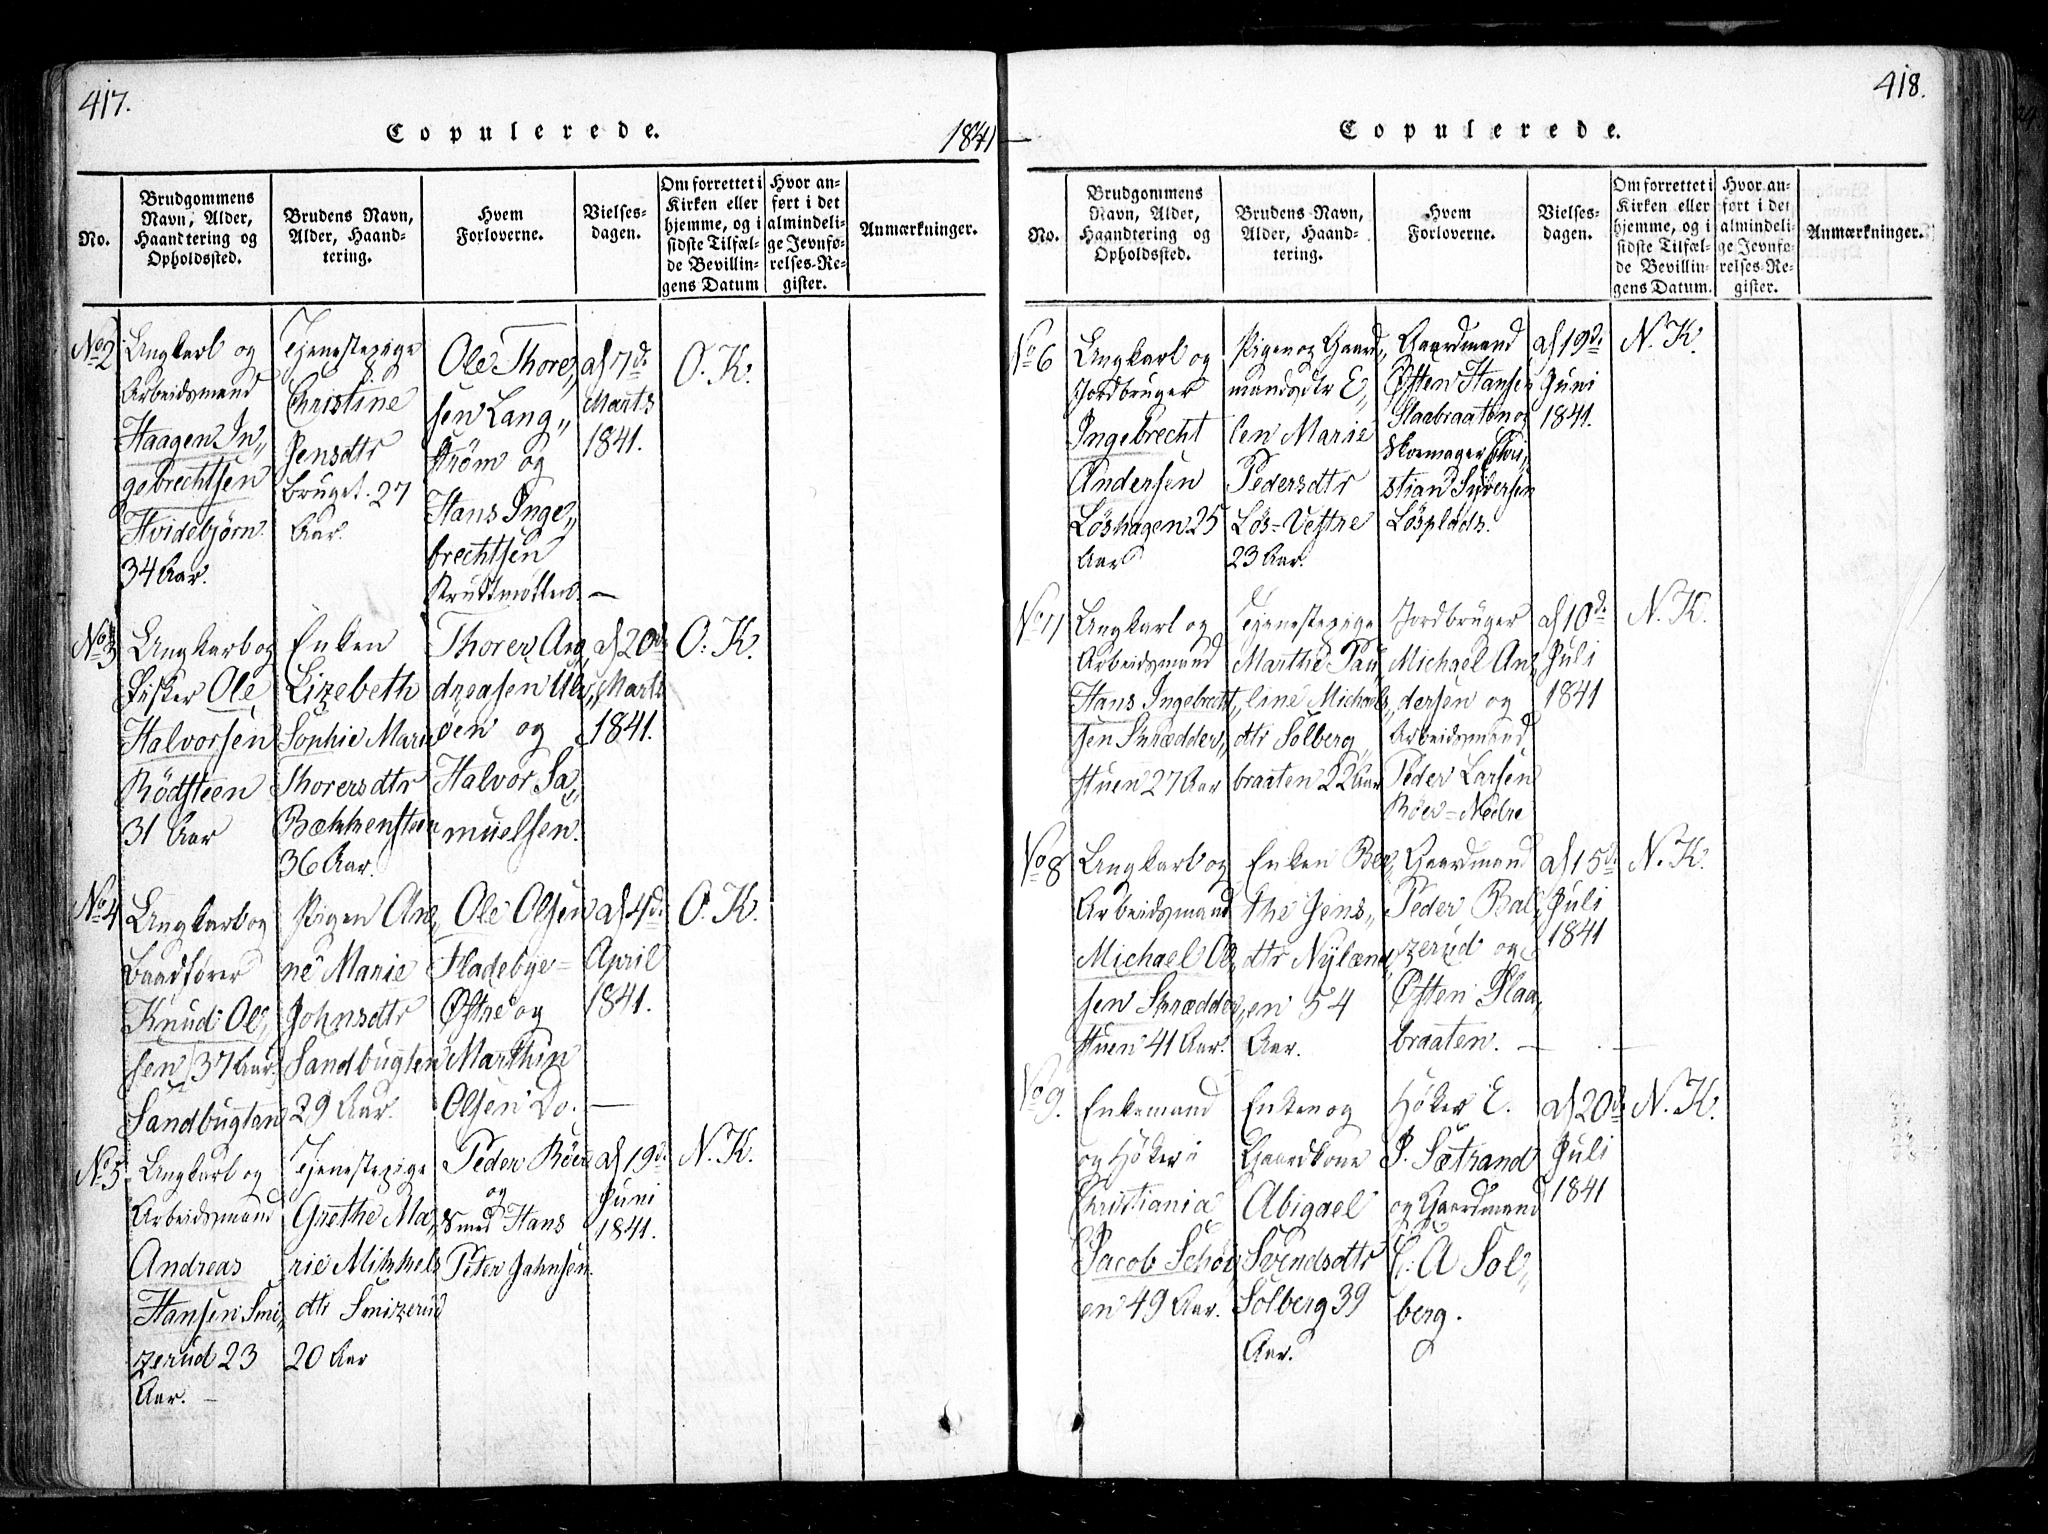 417.
Copulerede.
1841
No.
Brudgommens
Navn, Alder,
Haandtering og
Opholdssted.
Brudens Navn,
Alder, Haand-
tering.
Hvem
Forloverne.
Vielses-
dagen.
Om forrettet i
Kirken eller
hjemme, og i
sidste Tilfæl-
de Bevillin-
gens Datum
Hvor an-
ført i det
almindeli-
ge Jevnfø-
relses-Re-
gister.
Anmærkninger.
No 2
Ungkarl og
Arbeidsmand
Haagen In„
gebrechtsen
Hvidebjørn
34 Aar.
Tjenestepige
Christine
Jensdtr
Bruget. 27
Aar.
Ole Thore„
sen Lang„
strøm og
Hans Inge„
brechtsen
Krudtmøllen. —
d 7de
Marts
1841.
O. K.
No 3
Ungkarl og
Fisker Ole
Halvorsen
Rödsteen
31 Aar
Enken
Lizebeth
Sophie Marie
Thorersdtr
Bækkensteen
36 Aar.
Thorer An„
dreasen Ulv„
öen og
Halvor Sa„
muelsen.
d 20de
Marts
1841.
O. K.
No 4
Ungkarl og
Baadfører
Knud Ol„
sen 37 Aar
Sandbugten
Pigen Ane
Marie
Johnsdtr
Sandbugten
29 Aar.
Ole Olsen
Fladebye=
Østre og
Marthin
Olsen Do. —
d 4de
April
1841.
O. K.
No 5
Ungkarl og
Arbeidsmand
Andreas
Hansen Smi„
zerud 23
Aar. —
Tjenestepige
Grethe Ma„
rie Mikkels
dtr Smizerud
20 Aar
Peder Röer
og
Smed Hans
Peter Jahnsen
d 19de
Juni
1841.
N. K.
418.
Copulerede.
No.
Brudgommens
Navn, Alder,
Haandtering og
Opholdssted.
Brudens Navn,
Alder, Haand-
tering.
Hvem
Forloverne.
Vielses-
dagen.
Om forrettet i
Kirken eller
hjemme, og i
sidste Tilfæl-
de Bevillin-
gens Datum.
Hvor an-
ført i det
almindeli-
ge Jevnfø-
relses-Re-
gister.
Anmærkninger.
No 6
Ungkarl og
Jordbruger
Ingebrecht
Andersen
Löshagen 25
Aar
Pigen og Gaard„
mandsdtr E„
len Marie
Pedersdtr
Lös=Vestre
23 Aar.
Gaardmand
Østen Hansen
Slaabraaten og
Skomager Chri„
stian Syversen
Lösplads.
d 19de
Juni
1841.
N. K.
No 7
Ungkarl og
Arbeidsmand
Hans Ingebrecht„
sen Skrædder„
stuen 27 Aar
Tjenestepige
Marthe Pau„
line Michaels„
dtr Solberg„
braaten 22 Aar
Jordbruger
Michael An„
dersen og
Arbeidsmand
Peder Larsen
Röer=Nedre
d 10de
Juli
1841
N. K.
No 8
Ungkarl og
Arbeidsmand
Michael Ol„
sen Skrædder„
stuen 41 Aar.
Enken Ber„
the Jens„
dtr Nylænd„
en 54
Aar.
Gaardmand
Peder Bal„
zerud og
Østen Slaa„
braaten. —
d 15de
Juli
1841
N. K.
No 9.
Enkemand
og Høker i
Christiania
Jacob Schou„
en 49 Aar.
Enken og
Gaardkone
Abigael
Svendsdtr
Solberg 39
Aar.
Høker E.
P. Sætrand
og Gaardmand
C. A Sol„
berg.
d 20de
Juli
1841
N. K.